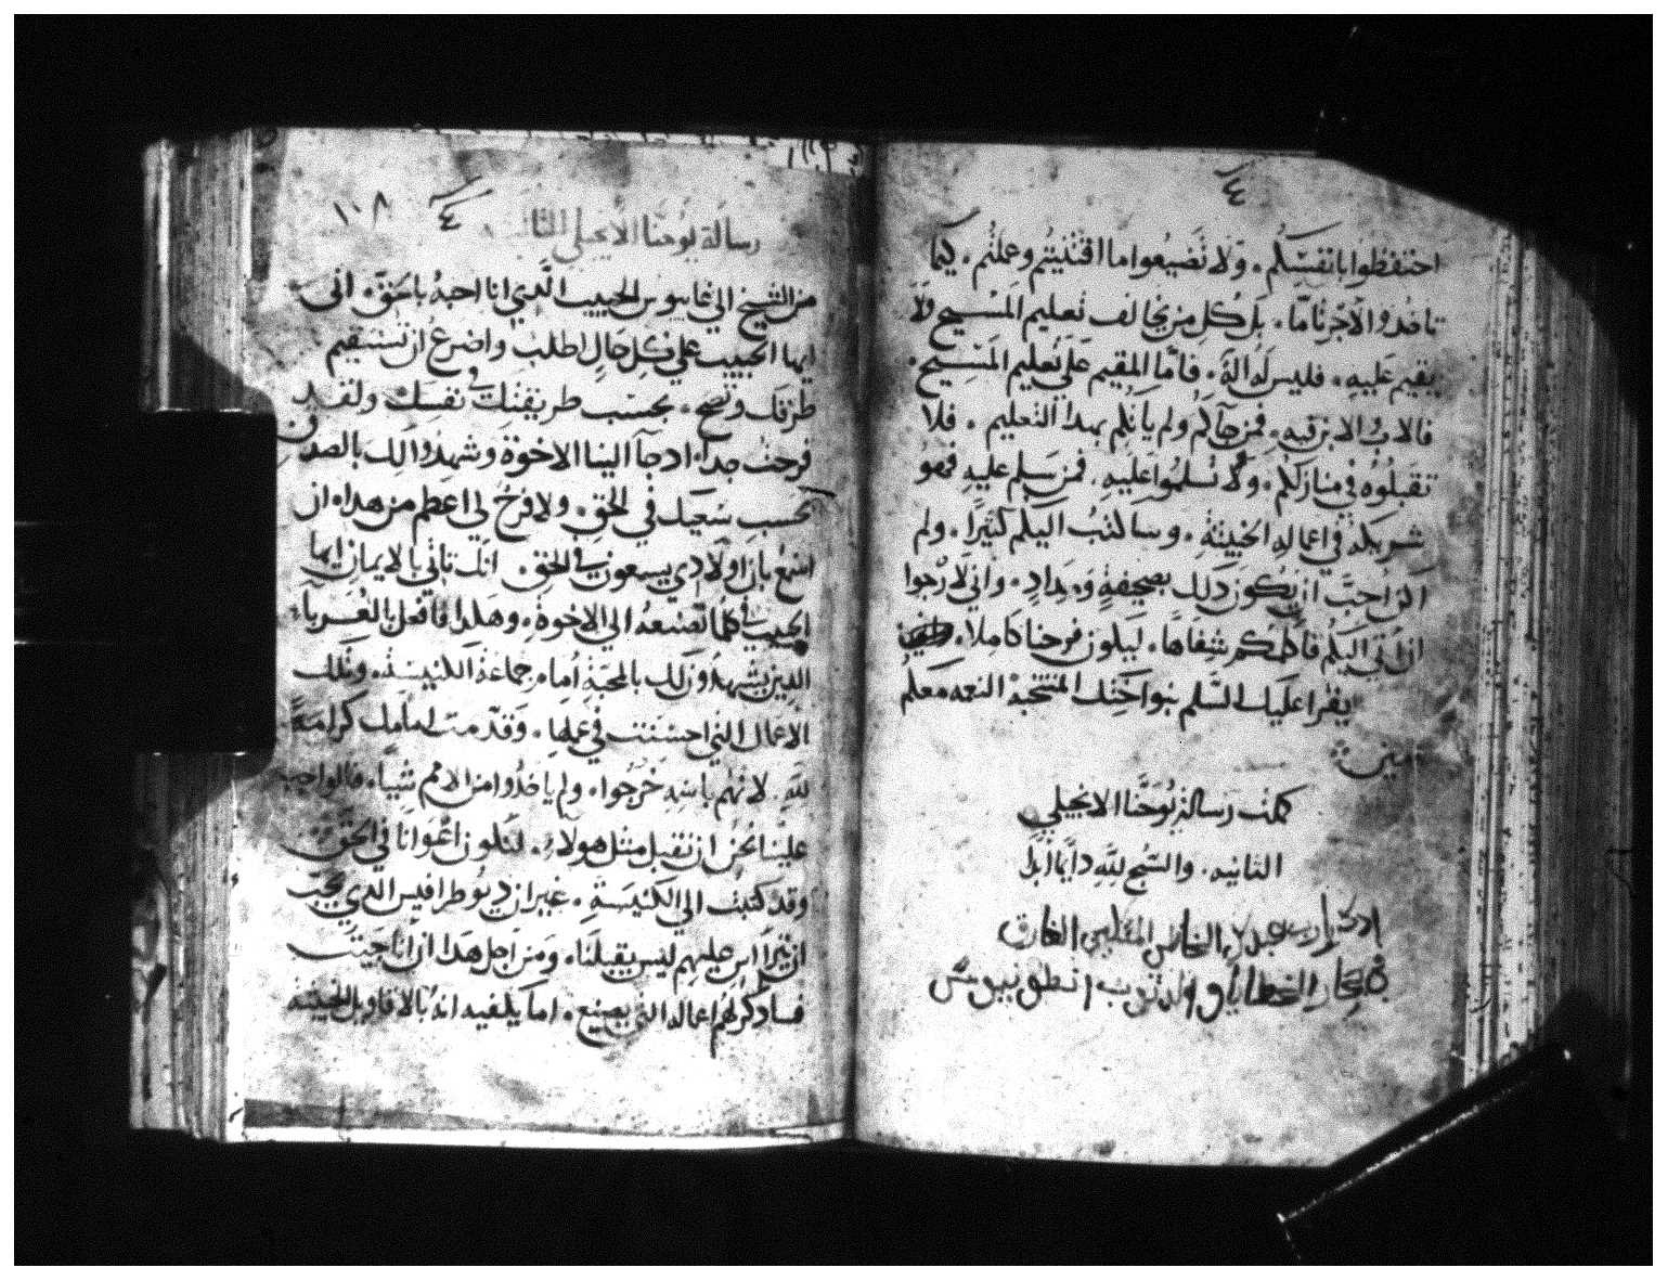 احتفظوا بانفسكم. ولا تضيعوا ما اقتنيتم وعملتم. كيما
تاخدوا الاجر تاما. بل كل من يخالف تعليم المسيح ولا
يقيم عليه. فليس له اله. فاما المقيم على تعليم المسيح.
فالاب والابن فيه. فمن جاكم ولم ياتكم بهدا التعليم. فلا
تقبلوه في منازلكم. ولا تسلموا عليه. فمن سلم عليه فهو
شريكه في اعماله الخبيثة. وساكتب اليكم كثيرا. ولم
اكن احب ان يكون دلك بصحيفة ومداد. واني لارجوا
ان اتي اليكم فاكلمكم شفاها. ليكون فرحنا كاملا.
يقرا عليك السلم بنوا اختك المنتخبة النعمه معكم
امين
كملت رسالة يوحنا الانجيلي
الثانيه. والسبح لله دايما ابدا
ادكر يارب عبدك الخاطى المسكين الغارق
في بحار الخطايا
١٠٨
رسالة يوحنا الانجيلي الثالثة
من الشيخ الي غاييوس الحبيب الدي انا احبه بالحق. انى
ايها الحبيب علي كل حال اطلب واضرع ان تستقيم
طرقك وتصح. بحسب طريقتك في نفسك ولقد
فرحت جدا. اد جآ الينا الاخوة وشهدوا لك بالصدق
بحسب سعيك في الحق. ولا فرح لي اعظم من هدا. ان
اسمع بان اولادي يسعون في الحق. انك تاتي بالايمان ايها
الحبيب في كلما تصنعه الي الاخوة. وهكدا فافعل بالغربآ.
الدين يشهدون لك بالمحبة امام جماعة الكنيسة. وتلك
الاعمال التي احسنت في عملها. وقدمت امامك كرامة
لله. لانهم باسمه خرجوا. ولم ياخدوا من الامم شييا. فالواجب
علينا نحن ان نقبل مثل هولاء. لنكون اعوانا في الحق
وقد كتبت الي الكنيسة. غير ان ديوطرافيس الدي يحب
ان يترااس عليهم ليس يقبلنا. ومن اجل هدا ان انا جيت
فسادكر لهم اعماله التي يصنع. اما يكفيه انه بالاقاويل الخبيثة